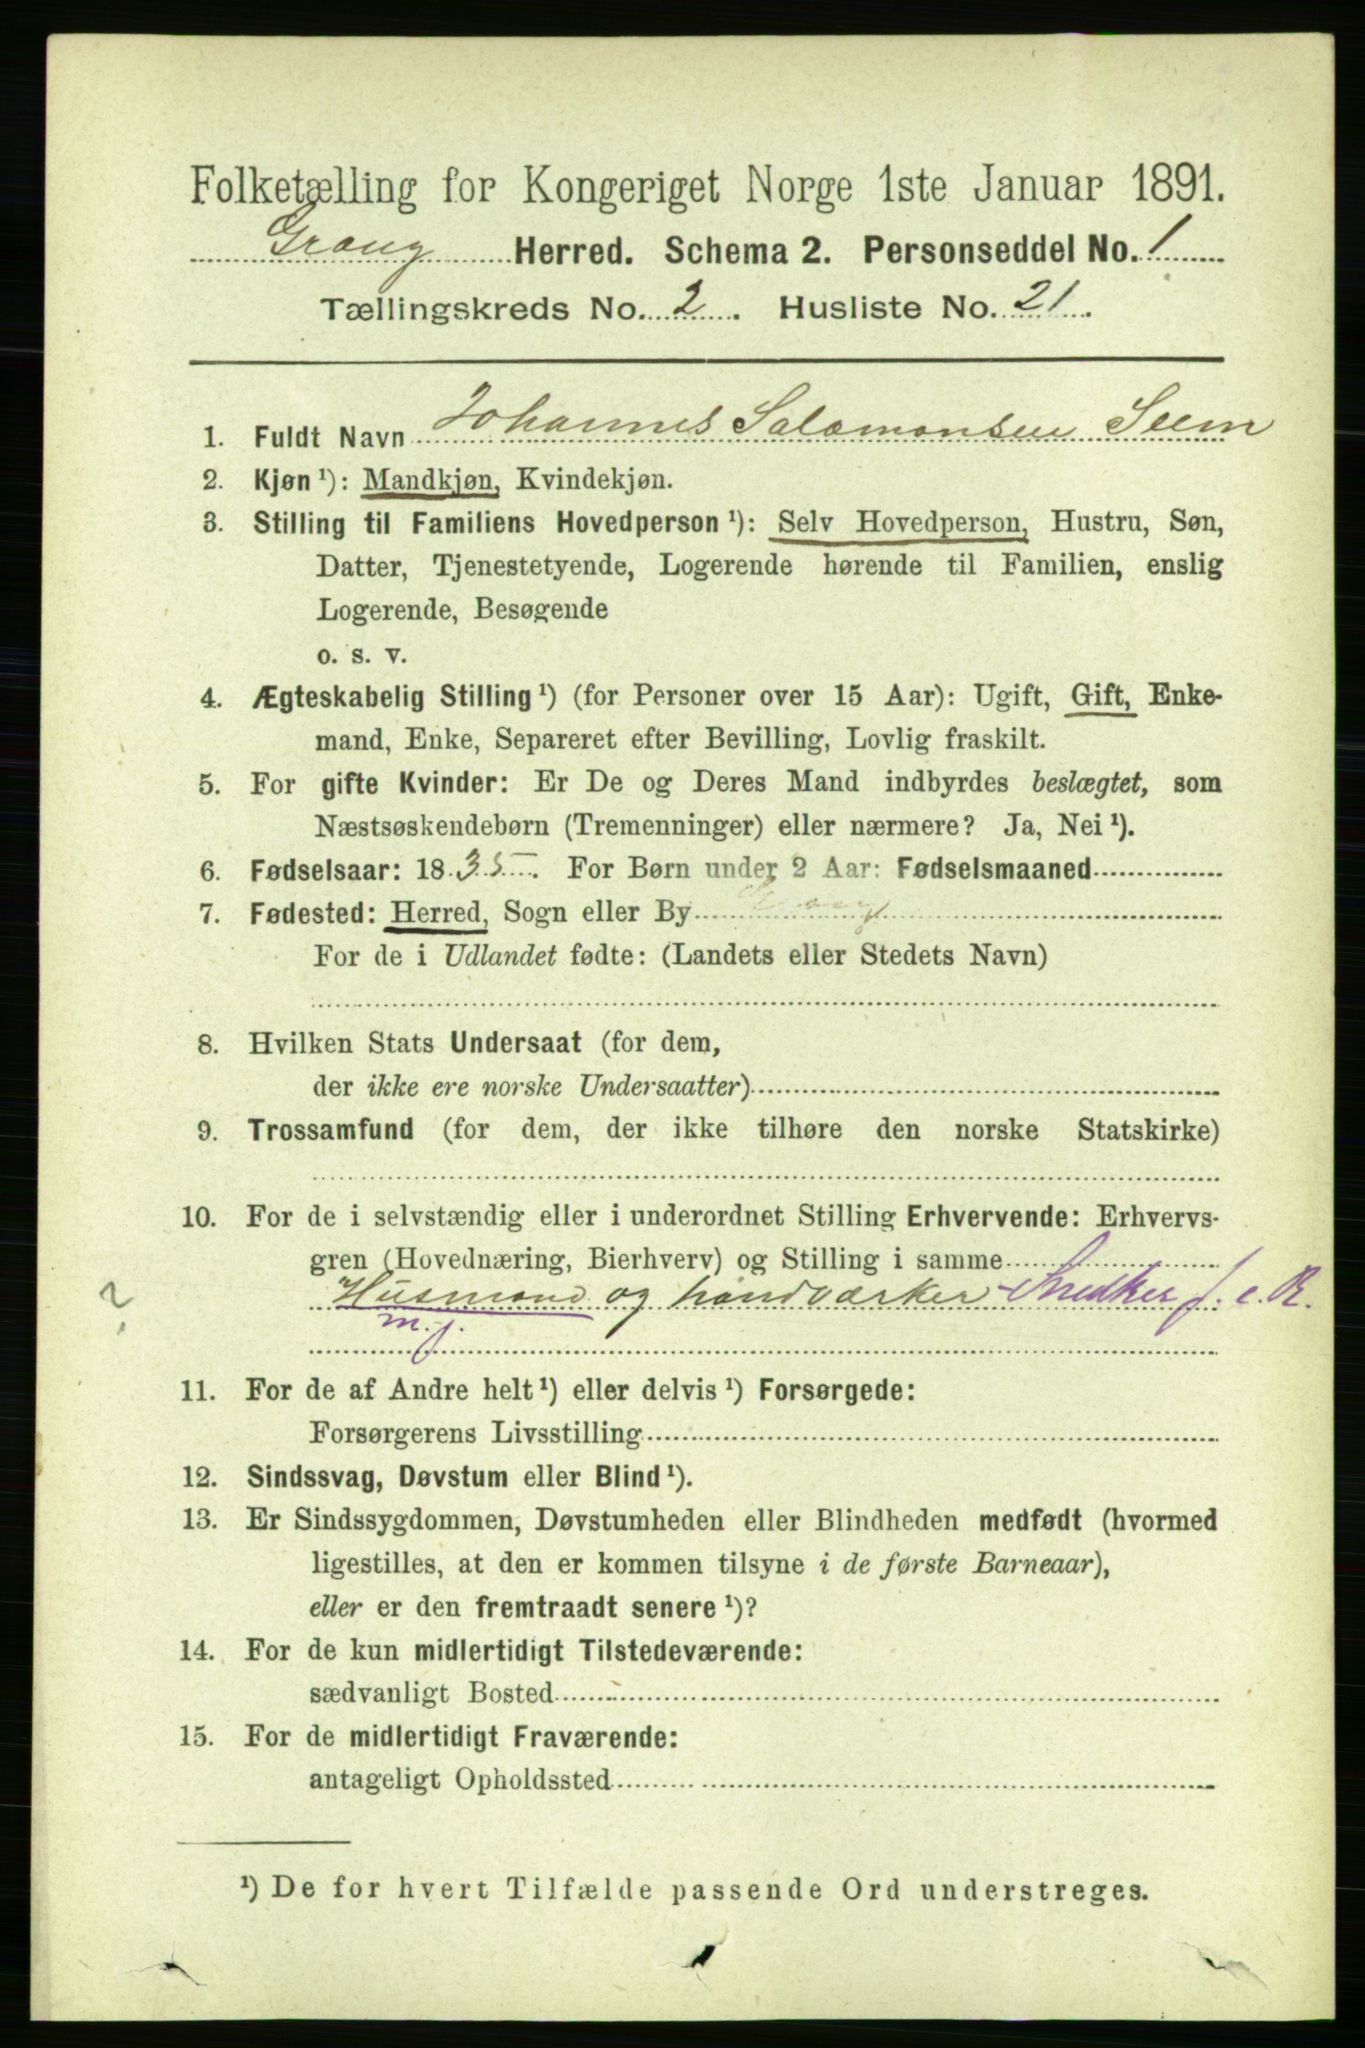 Folketælling for Kongeriget Norge 1ste Januar 1891.
Grong Herred. Schema 2. Personseddel No. 1
Tællingskreds No. 2. Husliste No. 21.
1. Fuldt Navn Johannes Salamonsen Seem
2. Kjøn ¹): Mandkjøn, Kvindekjøn.
3. Stilling til Familiens Hovedperson ¹): Selv Hovedperson, Hustru, Søn,
Datter, Tjenestetyende, Logerende hørende til Familien, enslig
Logerende, Besøgende
o. s. v.
4. Ægteskabelig Stilling ¹) (for Personer over 15 Aar): Ugift, Gift, Enke-
mand, Enke, Separeret efter Bevilling, Lovlig fraskilt.
5. For gifte Kvinder: Er De og Deres Mand indbyrdes beslægtet, som
Næstsøskendebørn (Tremenninger) eller nærmere? Ja, Nei ¹).
6. Fødselsaar: 1835. For Børn under 2 Aar: Fødselsmaaned
7. Fødested: Herred, Sogn eller By Grong
For de i Udlandet fødte: (Landets eller Stedets Navn)
8. Hvilken Stats Undersaat (for dem,
der ikke ere norske Undersaatter)
9. Trossamfund (for dem, der ikke tilhøre den norske Statskirke)
10. For de i selvstændig eller i underordnet Stilling Erhvervende: Erhvervs-
gren (Hovednæring, Bierhverv) og Stilling i samme
Husmand og handværker Snedker f. e. R.
m. j.
?
11. For de af Andre helt ¹) eller delvis ¹) Forsørgede:
Forsørgerens Livsstilling
12. Sindssvag, Døvstum eller Blind ¹).
13. Er Sindssygdommen, Døvstumheden eller Blindheden medfødt (hvormed
ligestilles, at den er kommen tilsyne i de første Barneaar),
eller er den fremtraadt senere ¹)?
14. For de kun midlertidigt Tilstedeværende:
sædvanligt Bosted
15. For de midlertidigt Fraværende:
antageligt Opholdssted
¹) De for hvert Tilfælde passende Ord understreges.